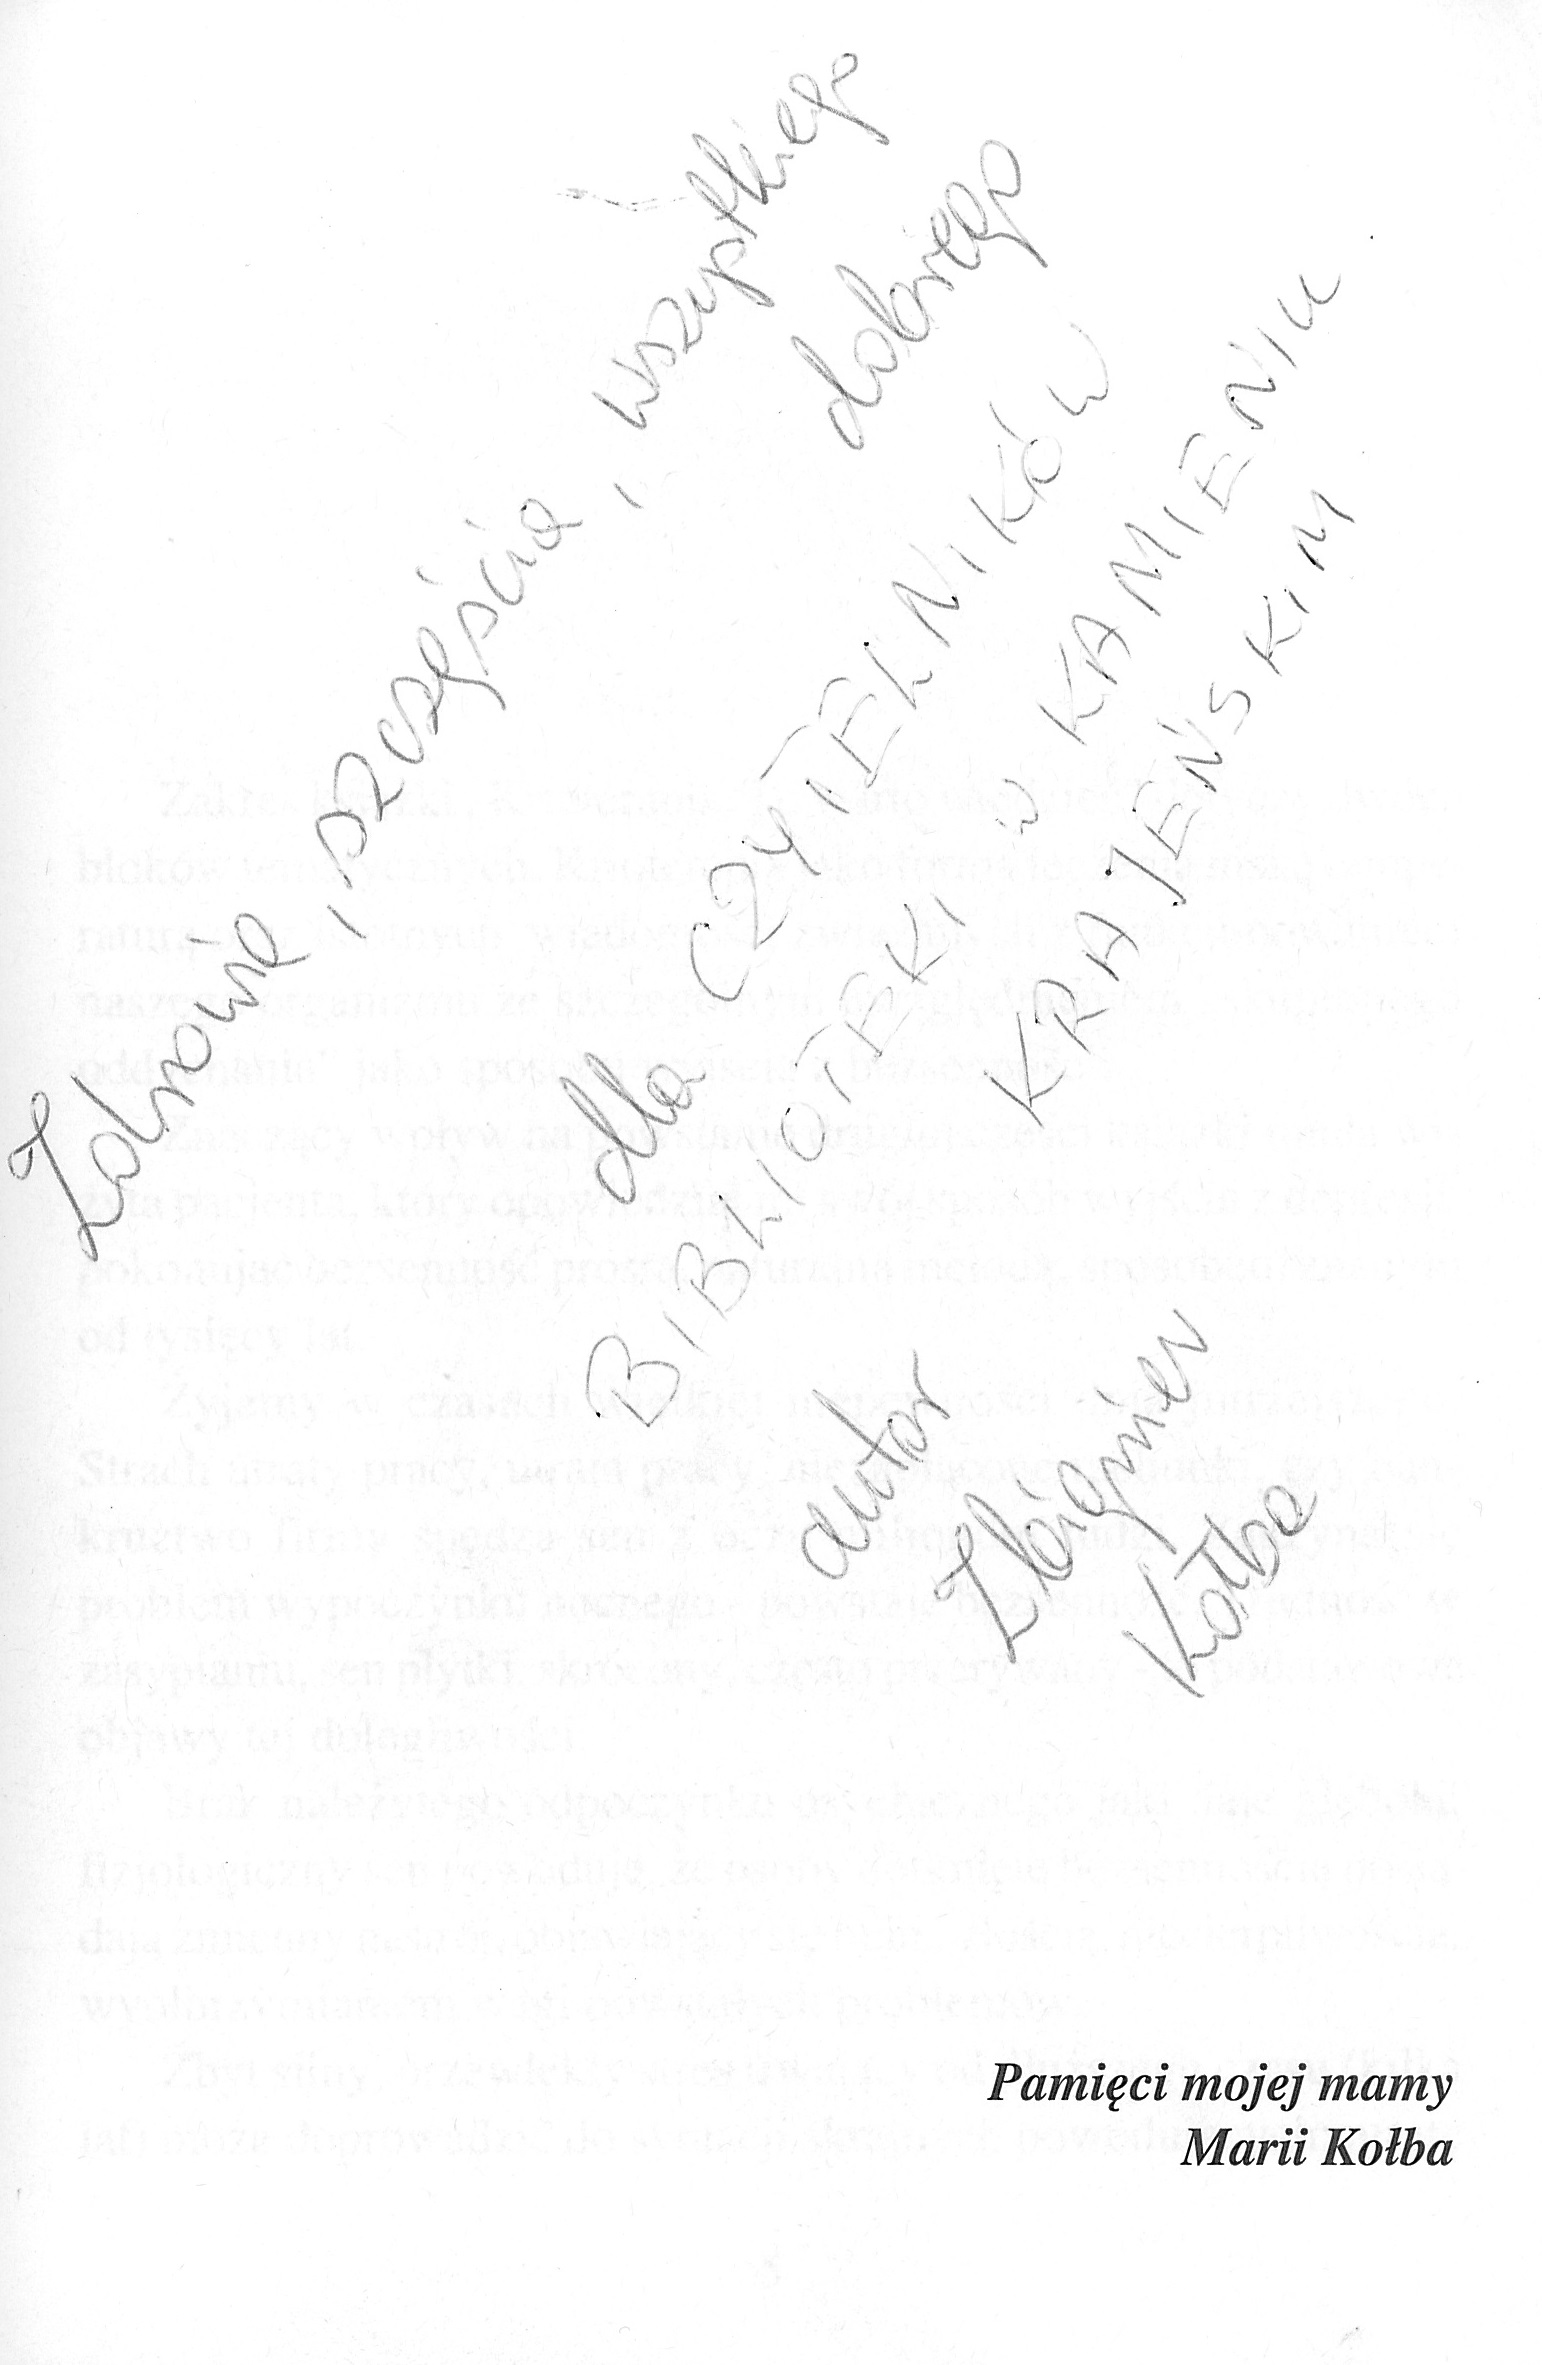 Zdrowia, szczęścia, wszystkiego
dobrego
dla CZYTELNIKÓW
BIBLIOTEKI W KAMIENIU
KRAJEŃSKIM
autor
Zbigniew
Kołba
Pamięci mojej mamy
Marii Kołba